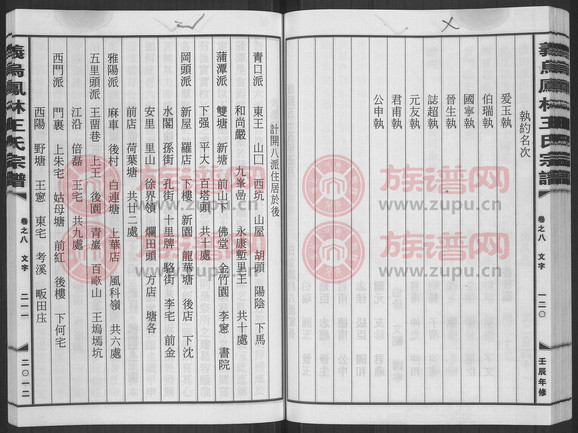 義烏鳳林王氏宗譜
卷之八 文字
一二〇
壬辰年修
執約名次
爱玉執
伯瑞執
國寧執
晉生執
誌超執
元友執
君甫執
公申執
計開八派住居於後
青口派 東王 山口 西坑 山屋 胡頭 陽陰 下馬
和尚嚴 九峯嵒 永康塹里王 共十處
蒲潭派 雙塘 新塘 前山下 佛堂 金竹園 李窻 書院
下强 平大 百塔頭 共十處
岡頭派 新屋 羅店 下樓 新園 龍華塘 後店 下沈
水閣 孫街 孔街 十里牌 駱街 李宅 前金
安里 里山 徐界領 爛田頭 方店 塘各
前店 荷葉塘 共廿二處
雅陽派 麻車 後村 白連塘 上華店 風科嶺 共六處
五里頭派 王畱巷 上王 後園 青巖 百畝山 王塢塢坑
江沿 倍磊 王宅 共九處
西門派 門裏 上朱宅 姑母塘 前紅 後樓 下何宅
西陽 野塘 王窻 東宅 考溪 畈田
義烏鳳林王氏宗譜
卷之八 文字
一二一
二〇一二
族谱网
www.zupu.cn
族谱网
www.zupu.cn